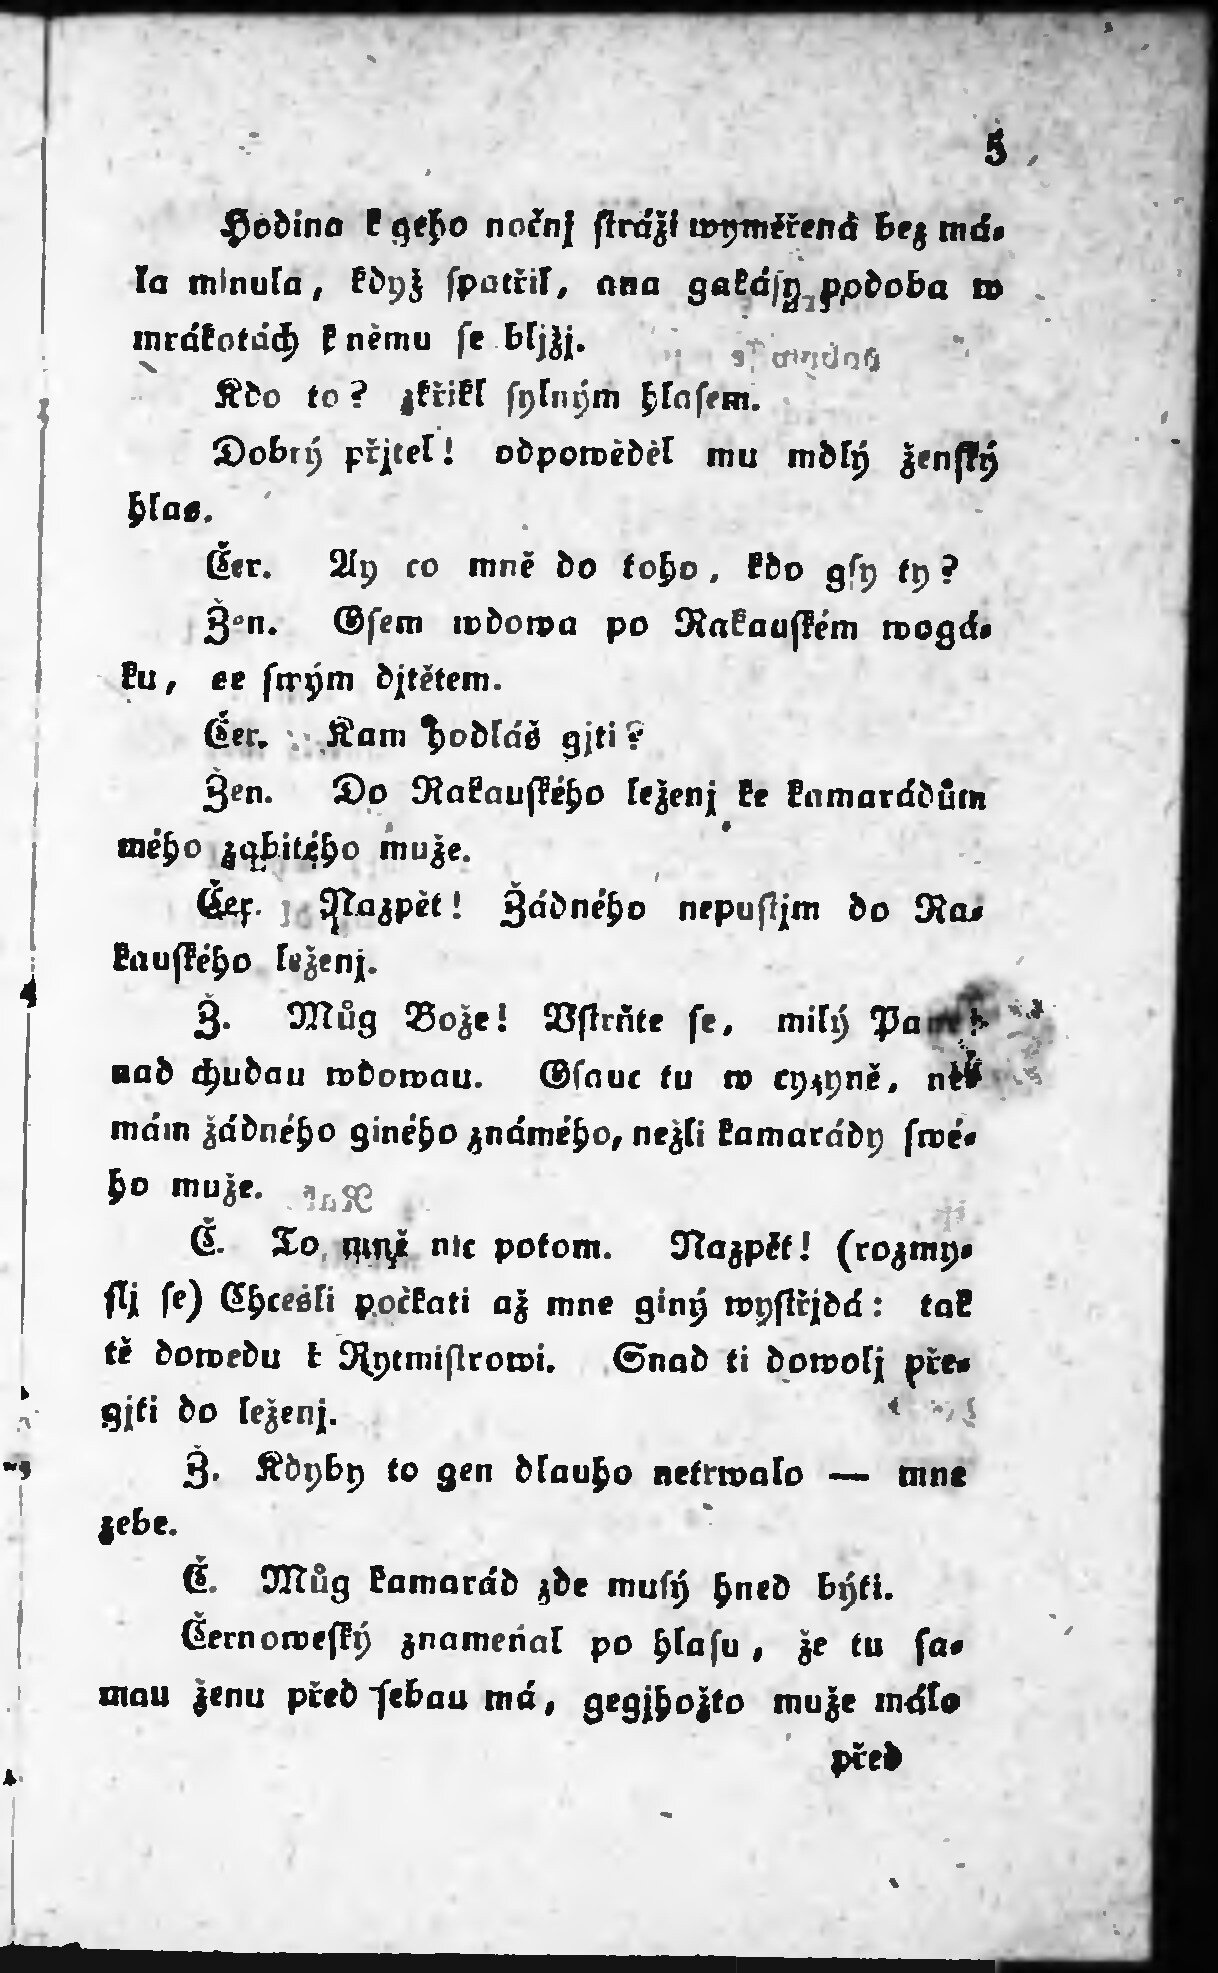 5
Hodina k geho nočnj stráži wyměřená bez má-
la minula, když spatřil, ana gakásy podoba w
mrákotách k němu se bljžj.
Kdo to? zkřikl sylným hlasem.
Dobrý přjtel! odpowěděl mu mdlý ženský
hlas.
Čer. Ay co mně do toho, kdo gsy ty?
Žen. Gsem wdowa po Rakauském wogá-
ku, se swým djtětem.
Čer. Kam hodláš gjti?
Žen. Do Rakauského leženj ke kamarádům
mého zabitého muže.
Čer. Nazpět! Žádného nepustjm do Ra-
kauského leženj.
Ž. Můg Bože! Vstrňte se, milý
nad chudau wdowau. Gsauc tu w cyzyně, ne-
mám žádného giného známého, nežli kamarády swé-
ho muže.
Č. To mně nic potom. Nazpět! (rozmy-
slj se) Chcešli počkati až mne giný wystřjdá: tak
tě dowedu k Rytmistrowi. Snad ti dowolj pře-
gjti do leženj.
Ž. Kdyby to gen dlauho netrwalo — mne
zebe.
Č. Můg kamarád zde musý hned býti.
Černoweský znamenal po hlasu, že tu sa-
mau ženu před sebau má, gegjhožto muže málo
před